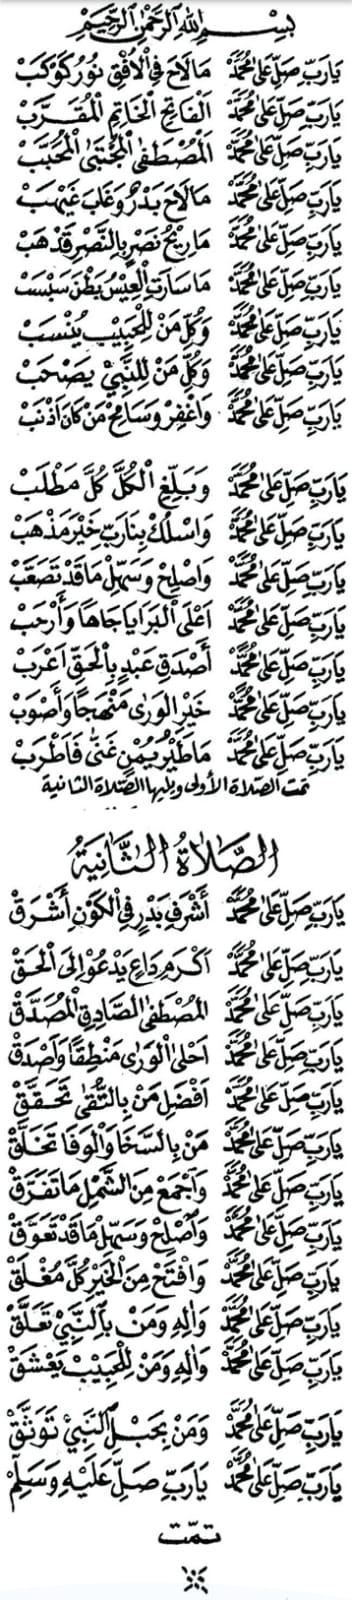 بِسْمِ اللهِ الرَّحْمٰنِ الرَّحِيْمِ
يَارَبِّ صَلِّ عَلىٰ مُحَمَّدْ مَالَاحَ فِي الْاُفْقِ نُوْرُ كَوْكَبْ
يَارَبِّ صَلِّ عَلىٰ مُحَمَّدْ الْفَاتِحِ الْخَاتِمِ الْمُقَرَّبْ
يَارَبِّ صَلِّ عَلىٰ مُحَمَّدْ الْمُصْطَفَى الْمُجْتَبَى الْمُحَبَّبْ
يَارَبِّ صَلِّ عَلىٰ مُحَمَّدْ مَالَاحَ بَدْرٌ وَغَابَ غَيْهَبْ
يَارَبِّ صَلِّ عَلىٰ مُحَمَّدْ مَارِيْحُ نَصْرٍ بِالنَّصْرِ قَدْهَبْ
يَارَبِّ صَلِّ عَلىٰ مُحَمَّدْ مَاسَارَتِ الْعِيْسُ بَطْنَ سَبْسَبْ
يَارَبِّ صَلِّ عَلىٰ مُحَمَّدْ وَكُلِّ مَنْ لِلْحَبِيْبِ يُنْسَبْ
يَارَبِّ صَلِّ عَلىٰ مُحَمَّدْ وَكُلِّ مَنْ لِلنَّبِيْ يَصْحَبْ
يَارَبِّ صَلِّ عَلىٰ مُحَمَّدْ وَاغْفِرْ وَسَامِحْ مَنْ كَانَ اَذْنَبْ
يَارَبِّ صَلِّ عَلىٰ مُحَمَّدْ وَبَلِّغِ الْكُلَّ كُلَّ مَطْلَبْ
يَارَبِّ صَلِّ عَلىٰ مُحَمَّدْ وَاسْلُكْ بِنَارَبِّ خَيْرَ مَذْهَبْ
يَارَبِّ صَلِّ عَلىٰ مُحَمَّدْ وَاصْلِحْ وَسَهِّلْ مَاقَدْ تَصَعَّبْ
يَارَبِّ صَلِّ عَلىٰ مُحَمَّدْ اَعْلَى الْبَرَايَا جَاهًا وَأَرْحَبْ
يَارَبِّ صَلِّ عَلىٰ مُحَمَّدْ أَصْدَقِ عَبْدٍ بِالْحَقِّ اَعْرَبْ
يَارَبِّ صَلِّ عَلىٰ مُحَمَّدْ خَيْرِ الْوَرٰى مَنْهَجًا وَأَصْوَبْ
يَارَبِّ صَلِّ عَلىٰ مُحَمَّدْ مَاطَيْرُ يُمْنٍ غَنّٰى فَاَطْرَبْ
تمت الصّلاة الأولى ويليها الصّلاة الثانية
الصَّلَاةُ الثَّانِيَةُ
يَارَبِّ صَلِّ عَلىٰ مُحَمَّدْ أَشْرَفِ بَدْرٍ فِي الْكَوْنِ أَشْرَقْ
يَارَبِّ صَلِّ عَلىٰ مُحَمَّدْ اَكْرَمِ دَاعٍ يَدْعُوْ اِلَى الْحَقْ
يَارَبِّ صَلِّ عَلىٰ مُحَمَّدْ الْمُصْطَفَى الصَّادِقِ الْمُصَدَّقْ
يَارَبِّ صَلِّ عَلىٰ مُحَمَّدْ اَحْلَى الْوَرٰى مَنْطِقًا وَأَصْدَقْ
يَارَبِّ صَلِّ عَلىٰ مُحَمَّدْ اَفْضَلِ مَنْ بِالتُّقٰى تَحَقَّقْ
يَارَبِّ صَلِّ عَلىٰ مُحَمَّدْ مَنْ بِالسَّخَا وَالْوَفَا تَخَلَّقْ
يَارَبِّ صَلِّ عَلىٰ مُحَمَّدْ وَاجْمَعْ مِنَ الشَّمْلِ مَاتَفَرَّقْ
يَارَبِّ صَلِّ عَلىٰ مُحَمَّدْ وَأَصْلِحْ وَسَهِّلْ مَاقَدْ تَعَوَّقْ
يَارَبِّ صَلِّ عَلىٰ مُحَمَّدْ وَافْتَحْ مِنَ الْخَيْرِ كُلَّ مُغْلَقْ
يَارَبِّ صَلِّ عَلىٰ مُحَمَّدْ وَاٰلِهِ وَمَنْ بِالنَّبِيْ تَعَلَّقْ
يَارَبِّ صَلِّ عَلىٰ مُحَمَّدْ وَاٰلِهِ وَمَنْ لِلْحَبِيْبِ يَعْشَقْ
يَارَبِّ صَلِّ عَلىٰ مُحَمَّدْ وَمَنْ بِحَبْلِ النَّبِيْ تَوَثَّقْ
يَارَبِّ صَلِّ عَلىٰ مُحَمَّدْ يَارَبِّ صَلِّ عَلَيْهِ وَسَلِّمْ
تمت